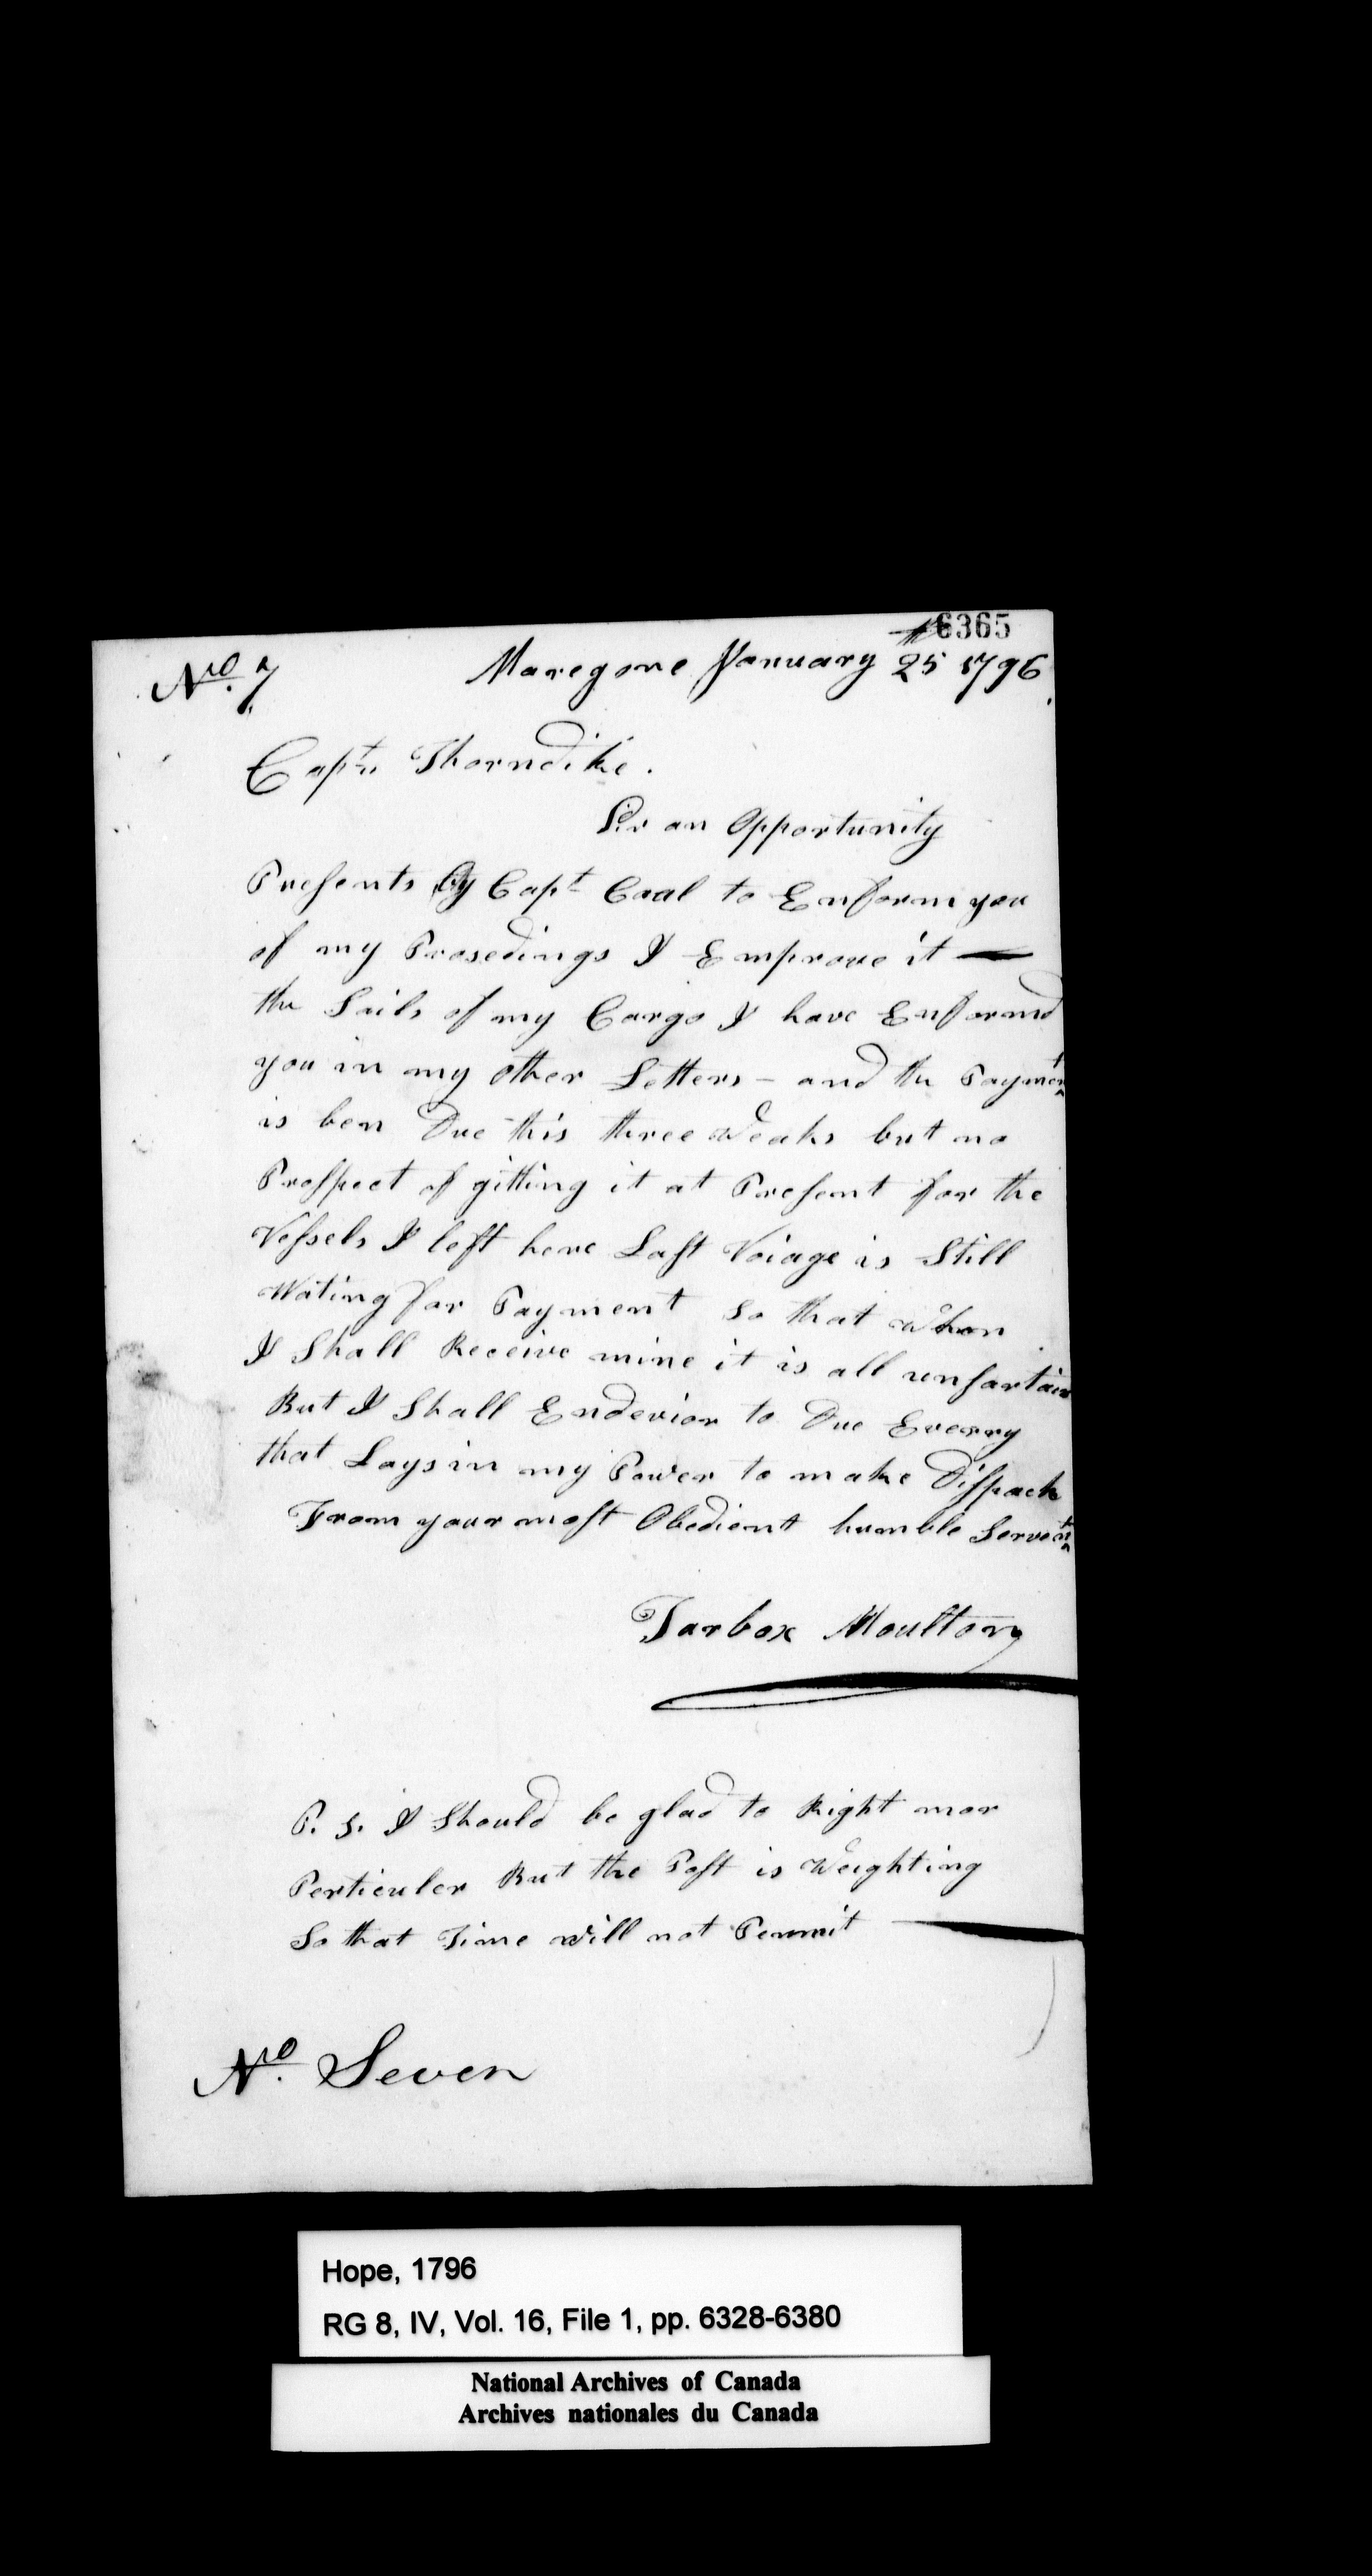 6365
No. 7 Maregone January 25 1796
Captn Thorndike.
Sir an Opportunity
Presents by Capt Coal to Enform you
of my Prosedings I Emprove it —
the Sails of my Cargo I have Enformd
you in my other Letters - and the Payment
is ben Due this three Weaks but no
Prospect of gitting it at Present for the
Vessels I left here Last Voiage is Still
Wating for Payment So that when
I Shall Receive mine it is all unsartain
But I Shall Endevior to Due Everry
that Lays in my Power to make Dispach
From your most Obedient humble Servant
Tarbox Moulton
P. S. I Should be glad to Right mor
Perticuler But the Post is Weighting
So that Time will not Permit
No. Seven
Hope, 1796
RG 8, IV, Vol. 16, File 1, pp. 6328-6380
National Archives of Canada
Archives nationales du Canada